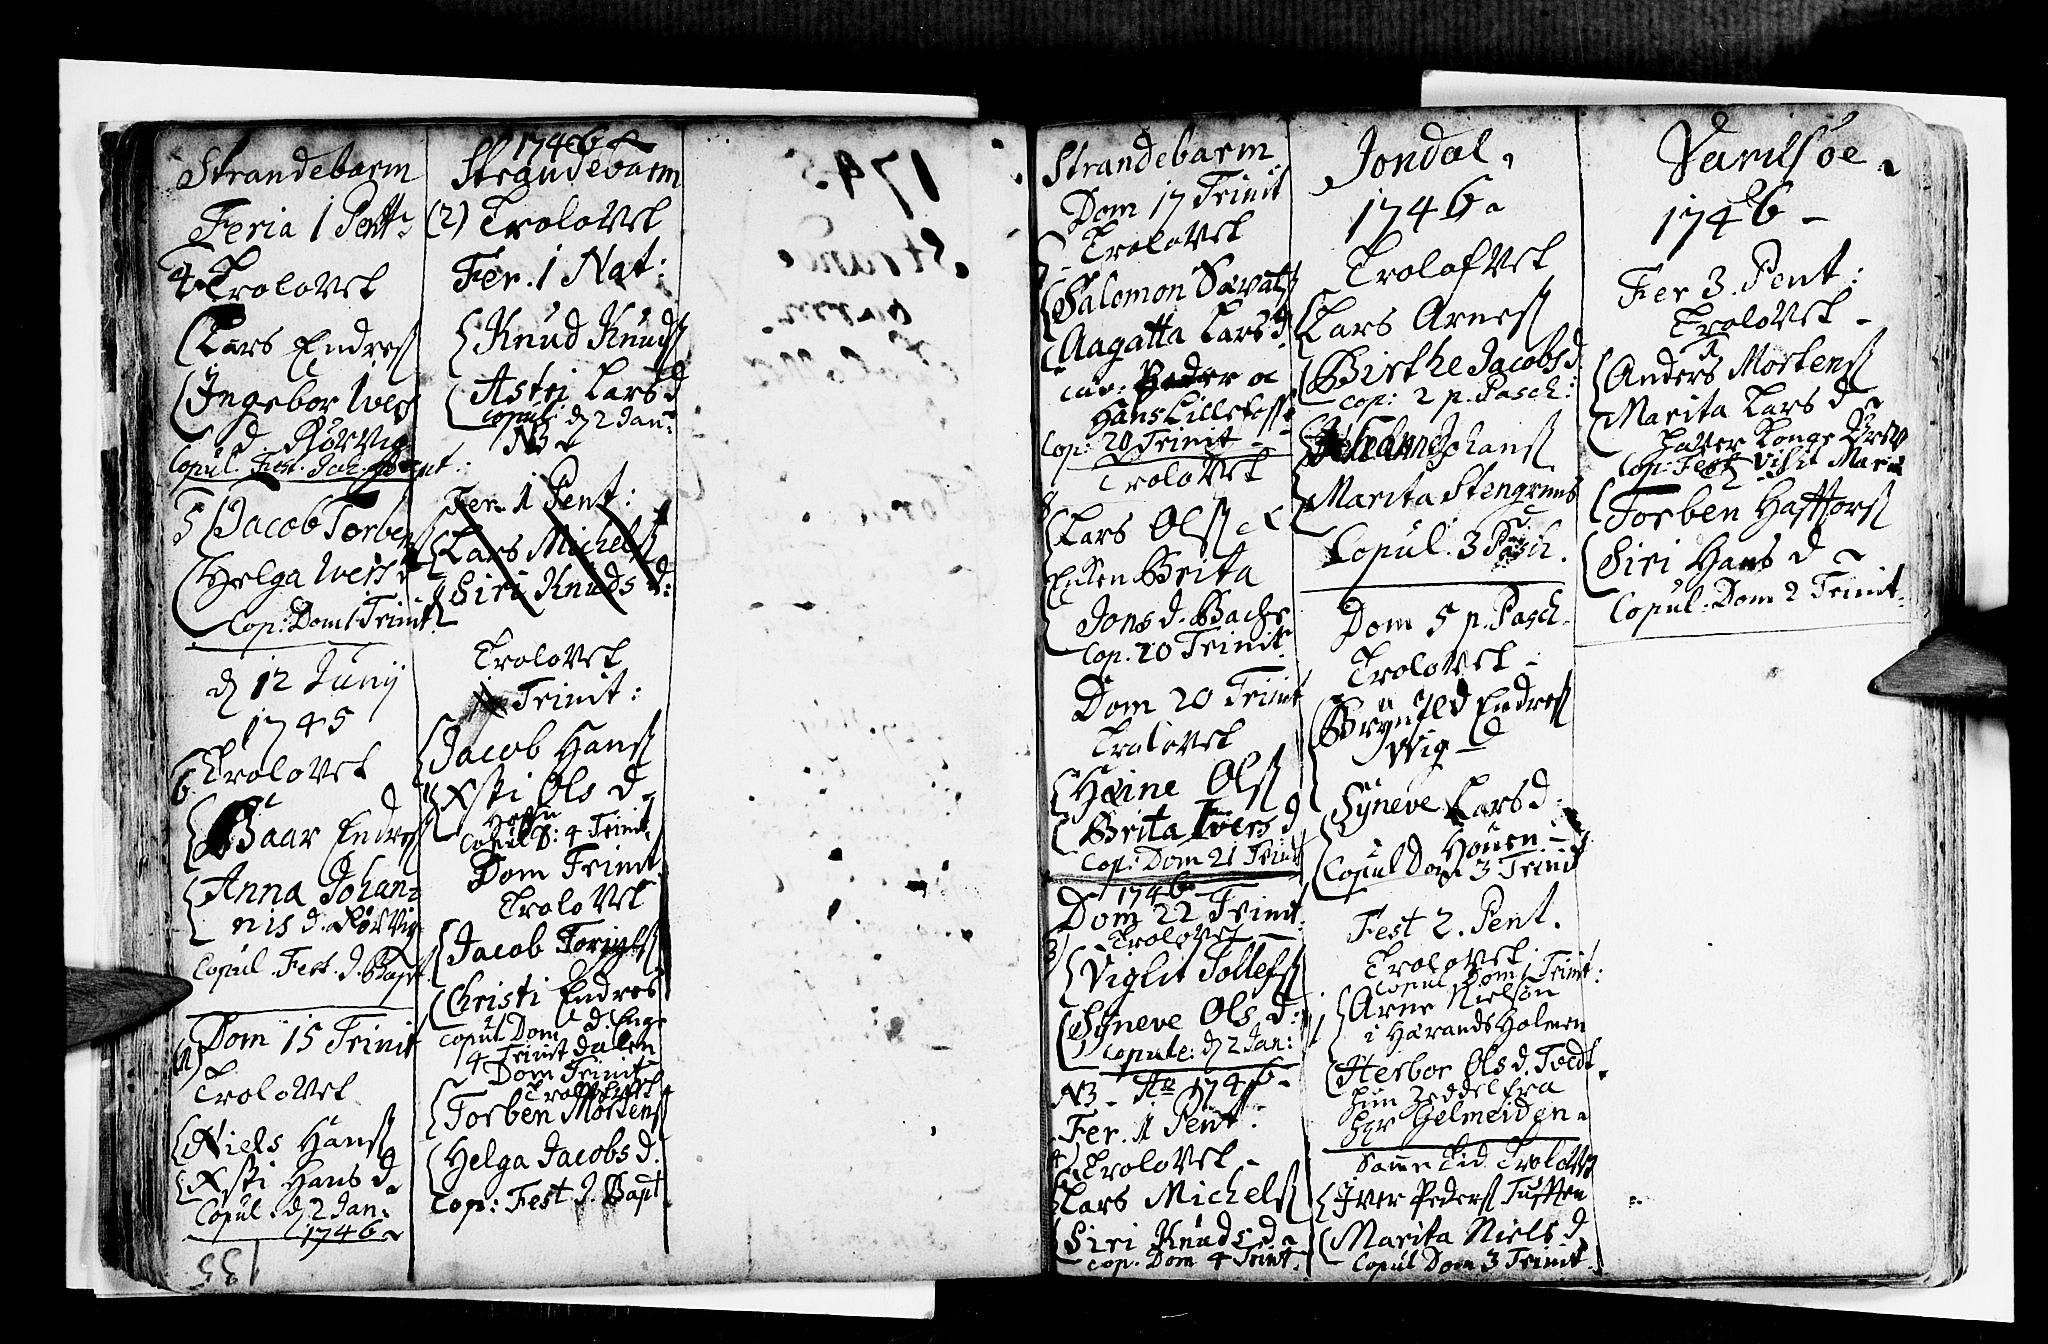 Strandebarm
Feria 1 Pent
4. Trolovet
Lars Endres
Ingebor Ivers
d. Rørvig
Copul. Fest. Joh.
5 Jacob Torbens
Helga Ivers d
Cop: Dom 1 Trinit
d 12 Junij
1745
6. Trolovet
Baar Endres
Anna Johan=
nis d. Rørvig
Copul. Fest. J. Bapt
Dom 15 Trinit
(1)
Trolovet
Niels Hans
Kristi Hans d
Copul. d 2 Jan.
1746
1746
Strandebarm
(2) Trolovet
Fer. 1 Nat:
Knud Knuds
Astri Lars d
Copul: d 2 Jan
NB
Fer. 1 Pent:
Lars Michels
Siri Knuds d:
Trolovet
Trinit:
Jacob Hans
Kristi Ols d
Copul D: 4 Trinit.
Dom Trinit
Trolovet
Jacob
Christi Endres
d. Enge
Copul Dom
4 Trinit dalen
Dom Trinit
Trolovet
Torben Mortens
Helga Jacobs d.
Cop: Fest J. Bapt
1745
Strande
barm
Strandebarm
Dom 17 Trinit
Trolovet
Salomon Savats
Aagatta Lars d.
Hans
Cop: 20 Trinit
Trolovet
Lars Ols
Enken Brita
Jons d. Bache
Cop. 20 Trinit
Dom 20 Trinit
Trolovet
Heine Ols
Brita Ivers d
Cop: Dom 21 Trinit
1746
Dom 22 Trinit.
3) Trolovet
Viglit Tollefs
Syneve Ols d:
Copule: d 2 Jan:
NB. Ao 1746
Fer. 1 Pent.
4) Trolovet
Lars Michels
Siri Knuds d
Cop. Dom 4 Trinit.
Jondal
1746
Trolofvet
Lars Arnes
Birthe Jacobs d.
Cop: 2 p. Pasch:
Johans
Marita Stengrims
Copul. 3 Pasch.
Dom 5 p. Pasch.
Trolovet
Brynild Endres
Wig
Syneve Lars d:
Houen
Copul Dom 3 Trinit
Fest 2. Pent.
Trolovet
Copul Dom 1 Trinit:
Arne Nielsøn
i Hærands Holmen
Herbor Ols d. Toedt
hun Zeddel fra
Hgr Gelmeiden
Samme Tid Trolovet
Iver Peders Tufften
Marita Niels d
Copul Dom 3 Trinit
Varilsøe
1746
Fer 3. Pent:
Trolovet
Anders Mortens
Marita Lars d
haver Konge Brev
Cop: Fest Visit Mariæ
Torben Haftors
Siri Hans d
Copul. Dom 2 Trinit.